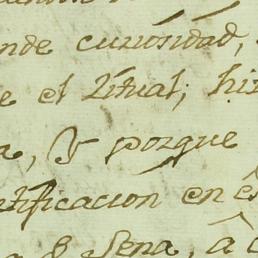 nde curiosidad,
e el Ritual; hi
a, Y porque
tificacion en
a S Sena, â